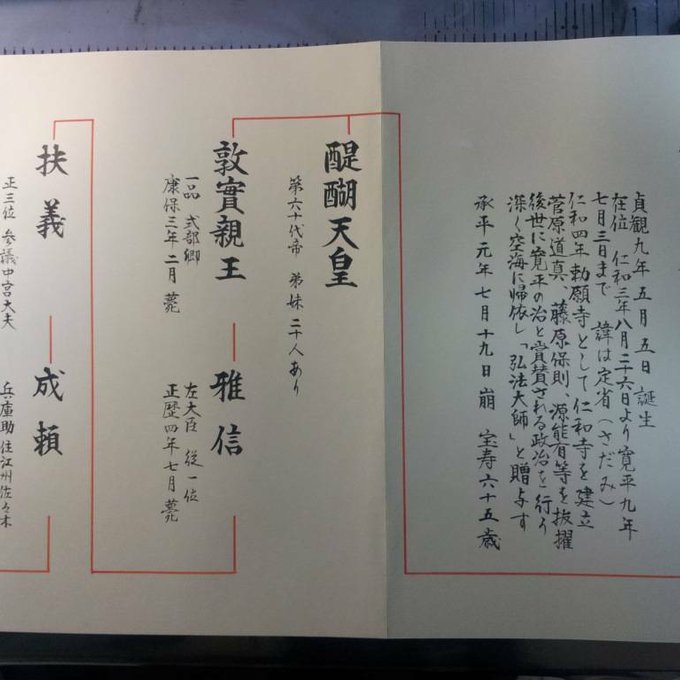 貞観九年五月五日誕生
在位 仁和三年八月二六日より寛平九年
七月三日まで 諱は定省(さだみ)
仁和四年勅願寺として仁和寺を建立
菅原道真、藤原保則、源能有等を抜擢
後世に寛平の治と賞賛される政治を行う
深く空海に帰依し「弘法大師」と贈与す
承平元年七月十九日崩 宝寿六十五歳
醍醐天皇
第六十代帝 弟妹二十人あり
敦實親王
一品 式部卿
康保三年二月薨
雅信
左大臣 従一位
正歴四年七月薨
扶義
正三位 参議中宮大夫
成頼
兵庫助 住江州佐々木